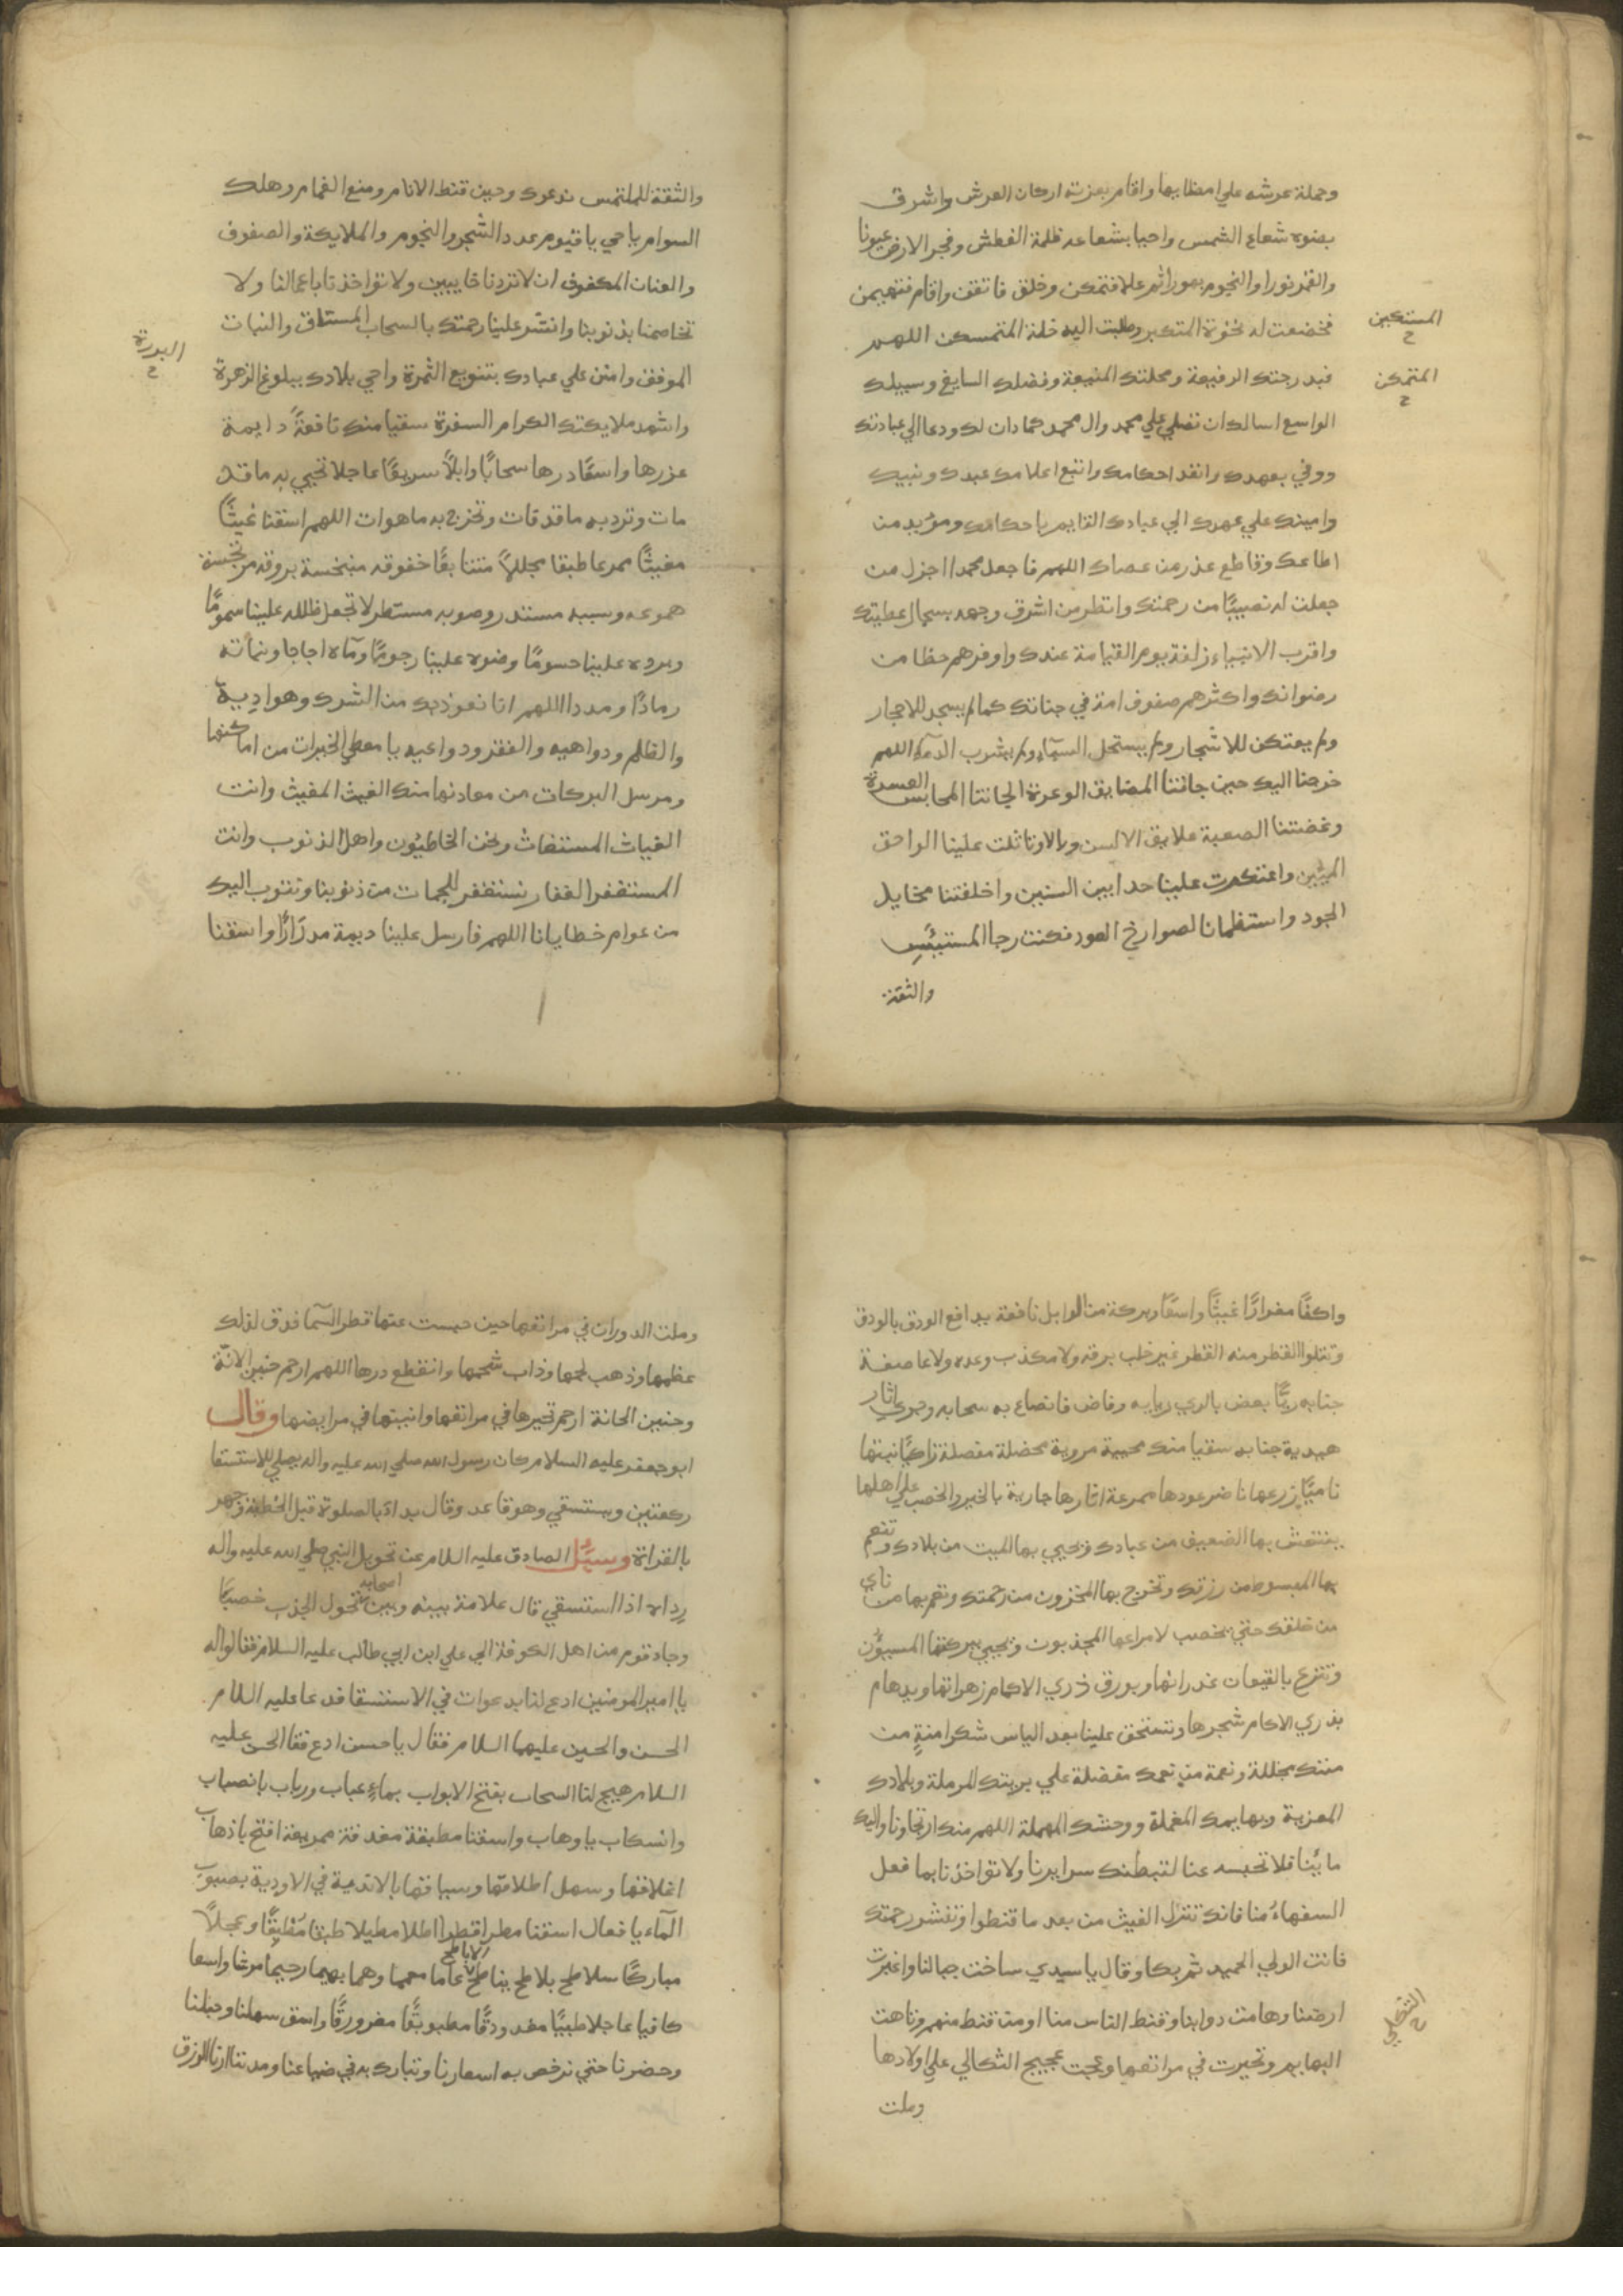 وحملة عرشه علي امطايها واقام بعزته اركان العرش واشرق
بضوه شعاع الشمس واحيا بشعاعه ظلمة الغطش وفجر الارض عيونا
والقمر نورا والنجوم بهورا ثم علا فتمكن وخلق فاتقن واقام فتهيمن
فخضعت له نخوة المتكبر وطلبت اليه خلة المتمسكن اللهم
المستكين ح
فبدرجتك الرفيعة ومحلتك المنيعة وفضلك السابغ وسبيلك
المتمكن ح
الواسع اسالك ان تصلي علي محمد وال محمد كما دان لك ودعا الي عبادتك
ووفي بعهدك وانفذ احكامك واتبع اعلامك عبدك ونبيك
وامينك علي عهدك الي عبادك القايم باحكامك ومويد من
اطاعك وقاطع عذر من عصاك اللهم فاجعل محمدا اجزل من
جعلت له نصيبًا من رحمتك وانظر من اشرق وجهه بسجال عطيتك
واقرب الانبياء زلفة يوم القيامة عندك واوفرهم حظا من
رضوانك واكثرهم صفوف امة في جنانك كما لم يسجد للاحجار
ولم يعتكن للاشجار ولم يستحل السبآء ولم يشرب الدمآء اللهم
خرجنا اليك حين جاتنا المضايق الوعرة الجانتا المحابس العسرة
وعضتنا الصعبة علايق الالسن وبالا وتاثلت علينا لواحق
المين واعتكرت علينا حدابين السنين واخلفتنا مخايل
الجود واستظمانا لصوارخ العود فكنت رجا المستيئس
والثقة
والثقة للملتمس ندعوك وحين قنط الانام ومنع الغمام وهلك
السوام يا حي يا قيوم عدد الشجر والنجوم والملايكة والصفوف
والعنان المكفوف ان لا تردنا خايبين ولا تواخذنا باعمالنا ولا
تخاصمنا بذنوبنا وانشر علينا رحمتك بالسحاب المستاق والنبات
الموفق وامنن علي عبادك بتنويع الثمرة واحي بلادك ببلوغ الزهرة
البدرة ح
واشهد ملايكتك الكرام السفرة سقيا منك نافعةً دايمة
غزرها واسعًا درها سحابًا وابلاً سريعًا عاجلا تحيي به ما قد
مات وترد به ما قد فات وتخرج به ما هوات اللهم اسقنا غيثًا
مغيثًا ممرعا طبقا مجللاً متتابعًا خفوقه منبخسة بروقه مرتجسة
هموعه وسيبه مستدر وصوبه مستطر لا تجعل ظله علينا سمومًا
وبرده علينا حسومًا وضوه علينا رجومًا ومآه اجاجا ونباته
رمادًا ومددا اللهم انا نعوذ بك من الشرك وهواديه
والظلم ودواهيه والفقر ودواعيه يا معطي الخيرات من اماكنها
ومرسل البركات من معادنها منك الغيث المغيث وانت
الغياث المستغاث ونحن الخاطيون واهل الذنوب وانت
المستغفر الغفار نستغفر للجمات من ذنوبنا ونتوب اليك
من عوام خطايانا اللهم فارسل علينا ديمة مدرارًا واسقنا
واكفًا مغرارًا غيثًا واسعًا وبركة من الوابل نافعة يدافع الودق بالودق
وتتلوا القطر منه القطر غير خلب برقه ولا مكذب وعده ولا عاصفة
جنابه ريًّا بعض بالري ربابه وفاض فانصاع به سحابه وجري اثار
هيدبة جنابه سقيا منك محيية مروية محضلة مفصلة زاكيًا نبتها
ناميًا زرعها ناضر عودها ممرعة اثارها جارية بالخير والخصب علي اهلها
ينتعش بها الضعيف من عبادك وتحيي بها الميت من بلادك وتنعم
بها المبسوط من رزقك وتخرج بها المخزون من رحمتك وتعم بها من ناي
من خلقك حتي يخصب لامراعها المجذبون ويحيي ببركتها المسنتون
وتترع بالقيعان غدرانها ويورق ذري الاكمام زهراتها ويدهام
بذري الاكام شجرها وتستحق علينا بعد الياس شكرا منةٍ من
مننك مجللة ونعمة من نعمك مفضلة علي بريتك المرملة وبلادك
المعزبة وبهايمك المعملة ووحشك المهملة اللهم منك ارتجاونا واليك
مابُنا فلا تحبسه عنا لتبطنك سرايرنا ولا تواخذنا بما فعل
السفهاءُ منا فانك تنزل الغيث من بعد ما قنطوا وتنشر رحمتك
فانت الولي الحميد ثم بكا وقال يا سيدي ساخت جبالنا واغبرت
ارضنا وهامت دوابنا وقنط الناس منا او من قنط منهم وتاهت
البهايم وتحيرت في مراتعها وعجت عجيج الثكالي علي اولادها
الثكلي ح
وملت
وملت الدوران في مراتعها حين حبست عنها قطر السمآ فدق لذلك
عظمها وذهب لحمها وذاب شحمها وانقطع درها اللهم ارحم حنين الانّة
وحنين الحانة ارحم تحيرها في مراتعها وانينها في مرابضها وقال
ابو جعفر عليه السلام كان رسول الله صلي الله عليه واله يصلي للاستسقا
ركعتين ويستسقي وهو قاعد وقال بداء بالصلوة قبل الخطبة وجهر
بالقراة وسئل الصادق عليه السلام عن تحويل النبي صلي الله عليه واله
رداه اذا استسقي قال علامة بينه وبين اصحابه تحول الجذب خصبًا
وجاء قوم من اهل الكوفة الي علي ابن ابي طالب عليه السلام فقالوا له
يا امير المومنين ادع لنا بدعوات في الاستسقا فدعا عليه السلام
الحسن والحسين عليهما السلام فقال يا حسن ادع فقا الحسن عليه
السلام هيج لنا السحاب بفتح الابواب بماءٍ عباب ورباب بانصباب
وانسكاب يا وهاب واسقنا مطبقة مغدقة ممريعة افتح باذهاب
اغلاقها وسهل اطلاقها وسياقها بالاندية في الاودية بصبوب
المآء يا فعال اسقنا مطرا قطرا طلا مطيلا طبقا مُطبِقًا وعجلاً
مباركًا سلاطح بلاطح يناطح الاباطح عاما معمما وهما بهيما رحيما مرشا واسعا
كافيا عاجلا طيبًا مغدودقًا مطبوبقًا مغرورقًا واسق سهلنا وجبلنا
وحضرنا حتي ترخص به اسعارنا وتبارك به في ضياعنا ومدننا ارنا الرزق